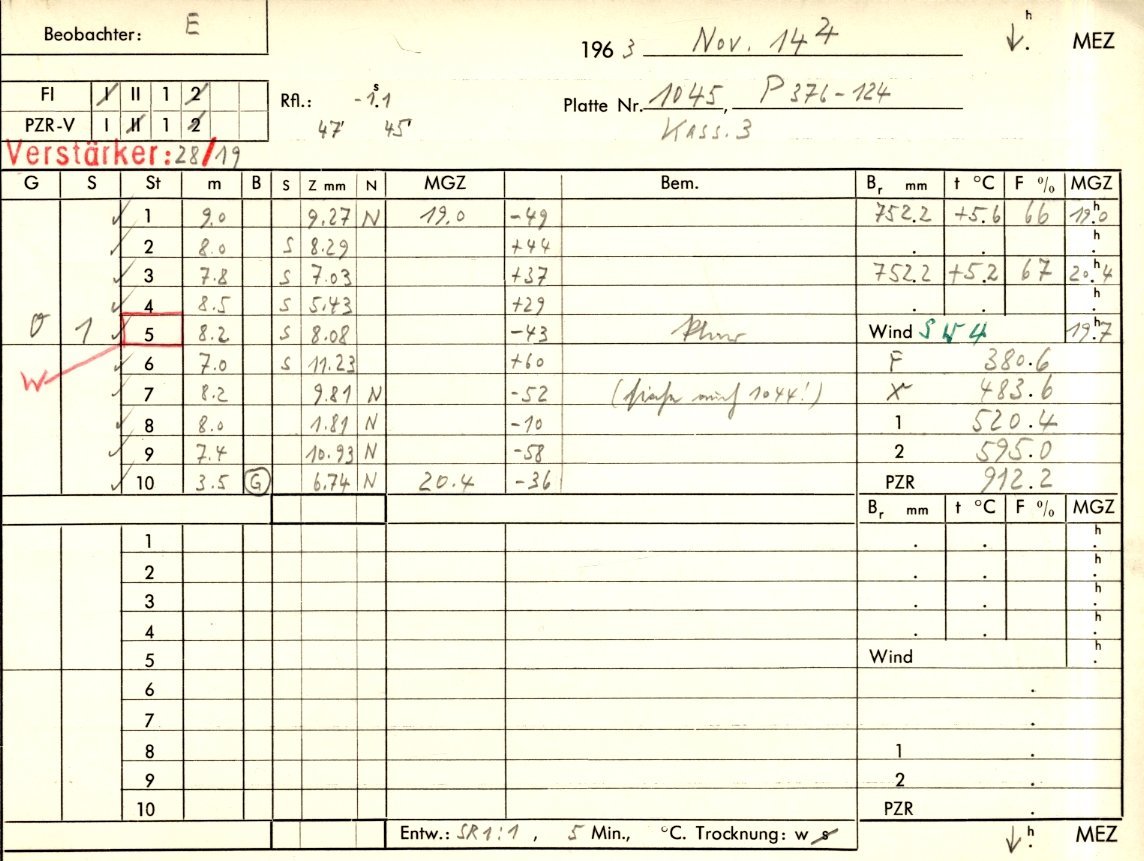 Beobachter: E
196 3 Nov. 14 h . MEZ
FI I II 1 2
PZR-V I II 1 2
Rfl.: -1ˢ.1
47' 45'
Platte Nr. 1045, P 376-124
Kass. 3
Verstärker: 28/19
G S St m B S Z mm N MGZ Bem. Br mm t °C F % MGZ
1 9.0 9.27 N 19.0 -49 752.2 +5.6 66 19ʰ.0
2 8.0 S 8.29 +44 . . h .
3 7.8 S 7.03 +37 752.2 +5.2 67 20ʰ.4
4 8.5 S 5.43 +29 . . h .
0 1 5 8.2 S 8.08 -43 Wind SW 4 19ʰ.7
W 6 7.0 S 11.23 +60 F 380.6
7 8.2 9.81 N -52 1044!) X 483.6
8 8.0 1.81 N -10 1 520.4
9 7.4 10.93 N -58 2 595.0
10 3.5 G 6.74 N 20.4 -36 PZR 912.2
Br mm t °C F % MGZ
1 . . h .
2 . . h .
3 . . h .
4 . . h .
5 Wind h .
6 .
7 .
8 1 .
9 2 .
10 PZR .
Entw.: SR 1:1 , 5 Min., °C. Trocknung: w s h . MEZ